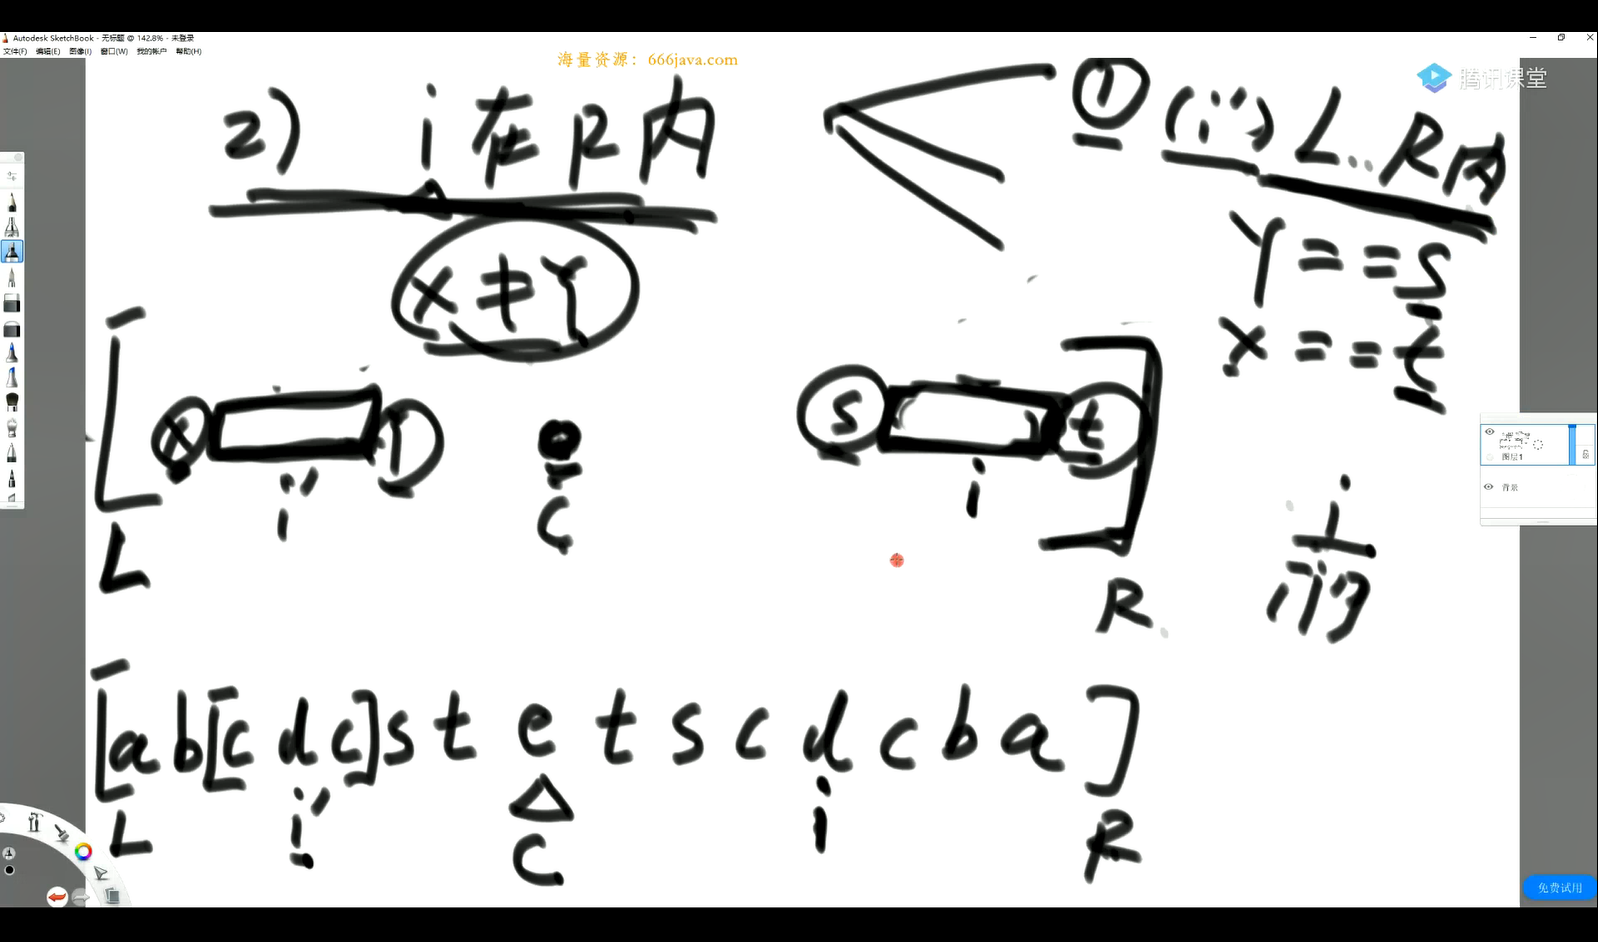 Autodesk SketchBook - 无标题 @ 142.8% - 未登录
文件(F) 编辑(E) 图像(I) 窗口(W) 我的帐户 帮助(H)
海量资源：666java.com
腾讯课堂
2) i在R内
① (i') L..R内
X≠Y
Y==S
X==t
X Y s t
i' c i
L R
i
i'的
图层1
背景
[ab[cdc]stetscdcba]
L i' C i R
免费试用